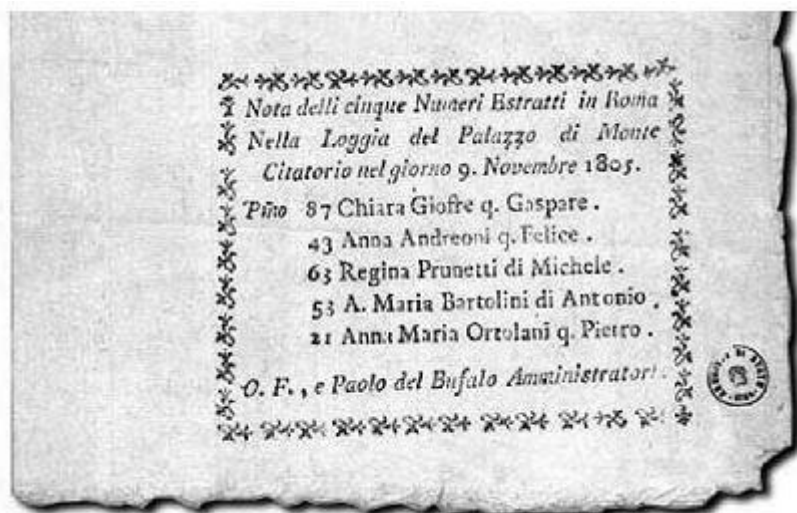 Nota delli cinque Numeri Estratti in Roma
Nella Loggia del Palazzo di Monte
Citatorio nel giorno 9. Novembre 1805.
Pṁo 87 Chiara Giofre q. Gaspare.
43 Anna Andreoni q. Felice.
63 Regina Prunetti di Michele.
53 A. Maria Bartolini di Antonio.
21 Anna Maria Ortolani q. Pietro.
O. F., e Paolo del Bufalo Amministratori.